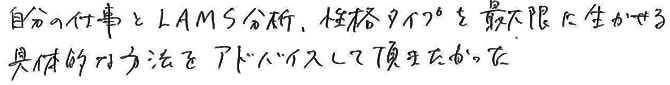 自分の仕事とLAMS分析、性格タイプを最大限に生かせる
具体的な方法をアドバイスして頂きたかった